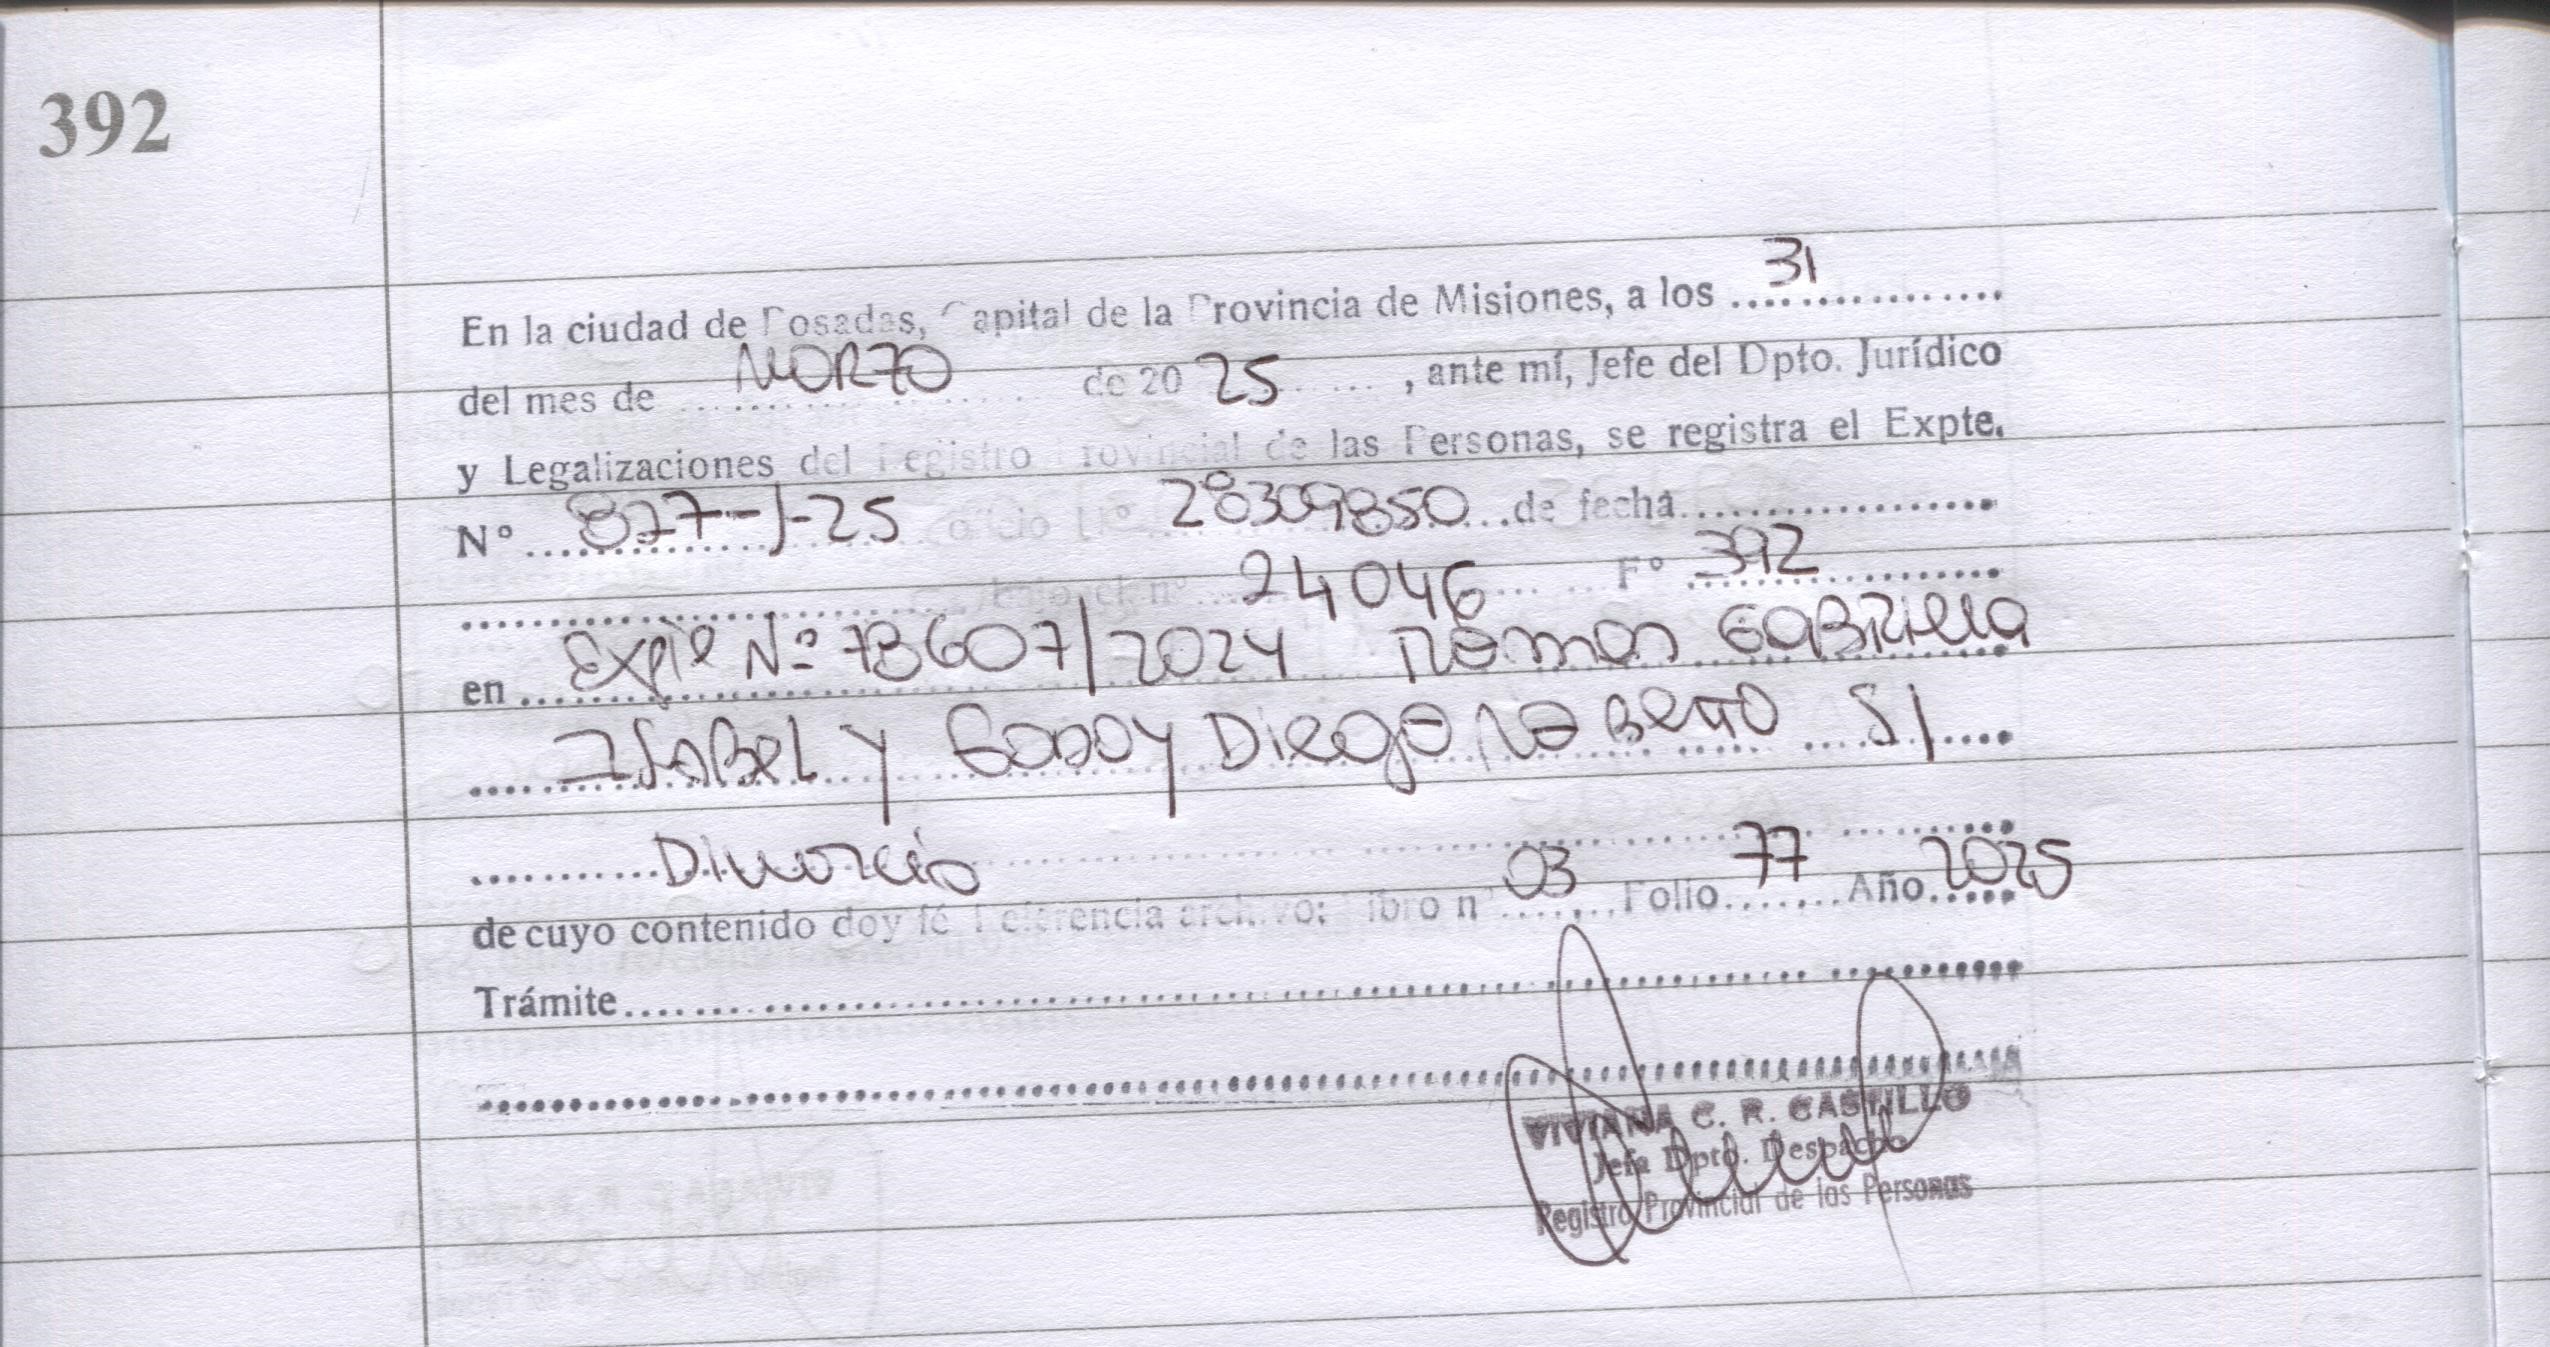 392
En la ciudad de Posadas, Capital de la Provincia de Misiones, a los 31
del mes de MARZO de 2025, ante mí, Jefe del Dpto. Jurídico
y Legalizaciones del Registro Provincial de las Personas, se registra el Expte.
N° 877-J-25 oficio N° 28309850 de fecha
bajo el n° 24046 F° 392
en Expte Nº 78607/2024 Ramos GABRIELA
ISABEL Y GODOY DIEGO ROBERTO S/
Divorcio
de cuyo contenido doy fé Referencia archivo: Libro n° 03 Folio 77 Año 2025
Trámite
VIVIANA C. R. CASTILLO
Jefa Dpto. Despacho
Registro Provincial de las Personas